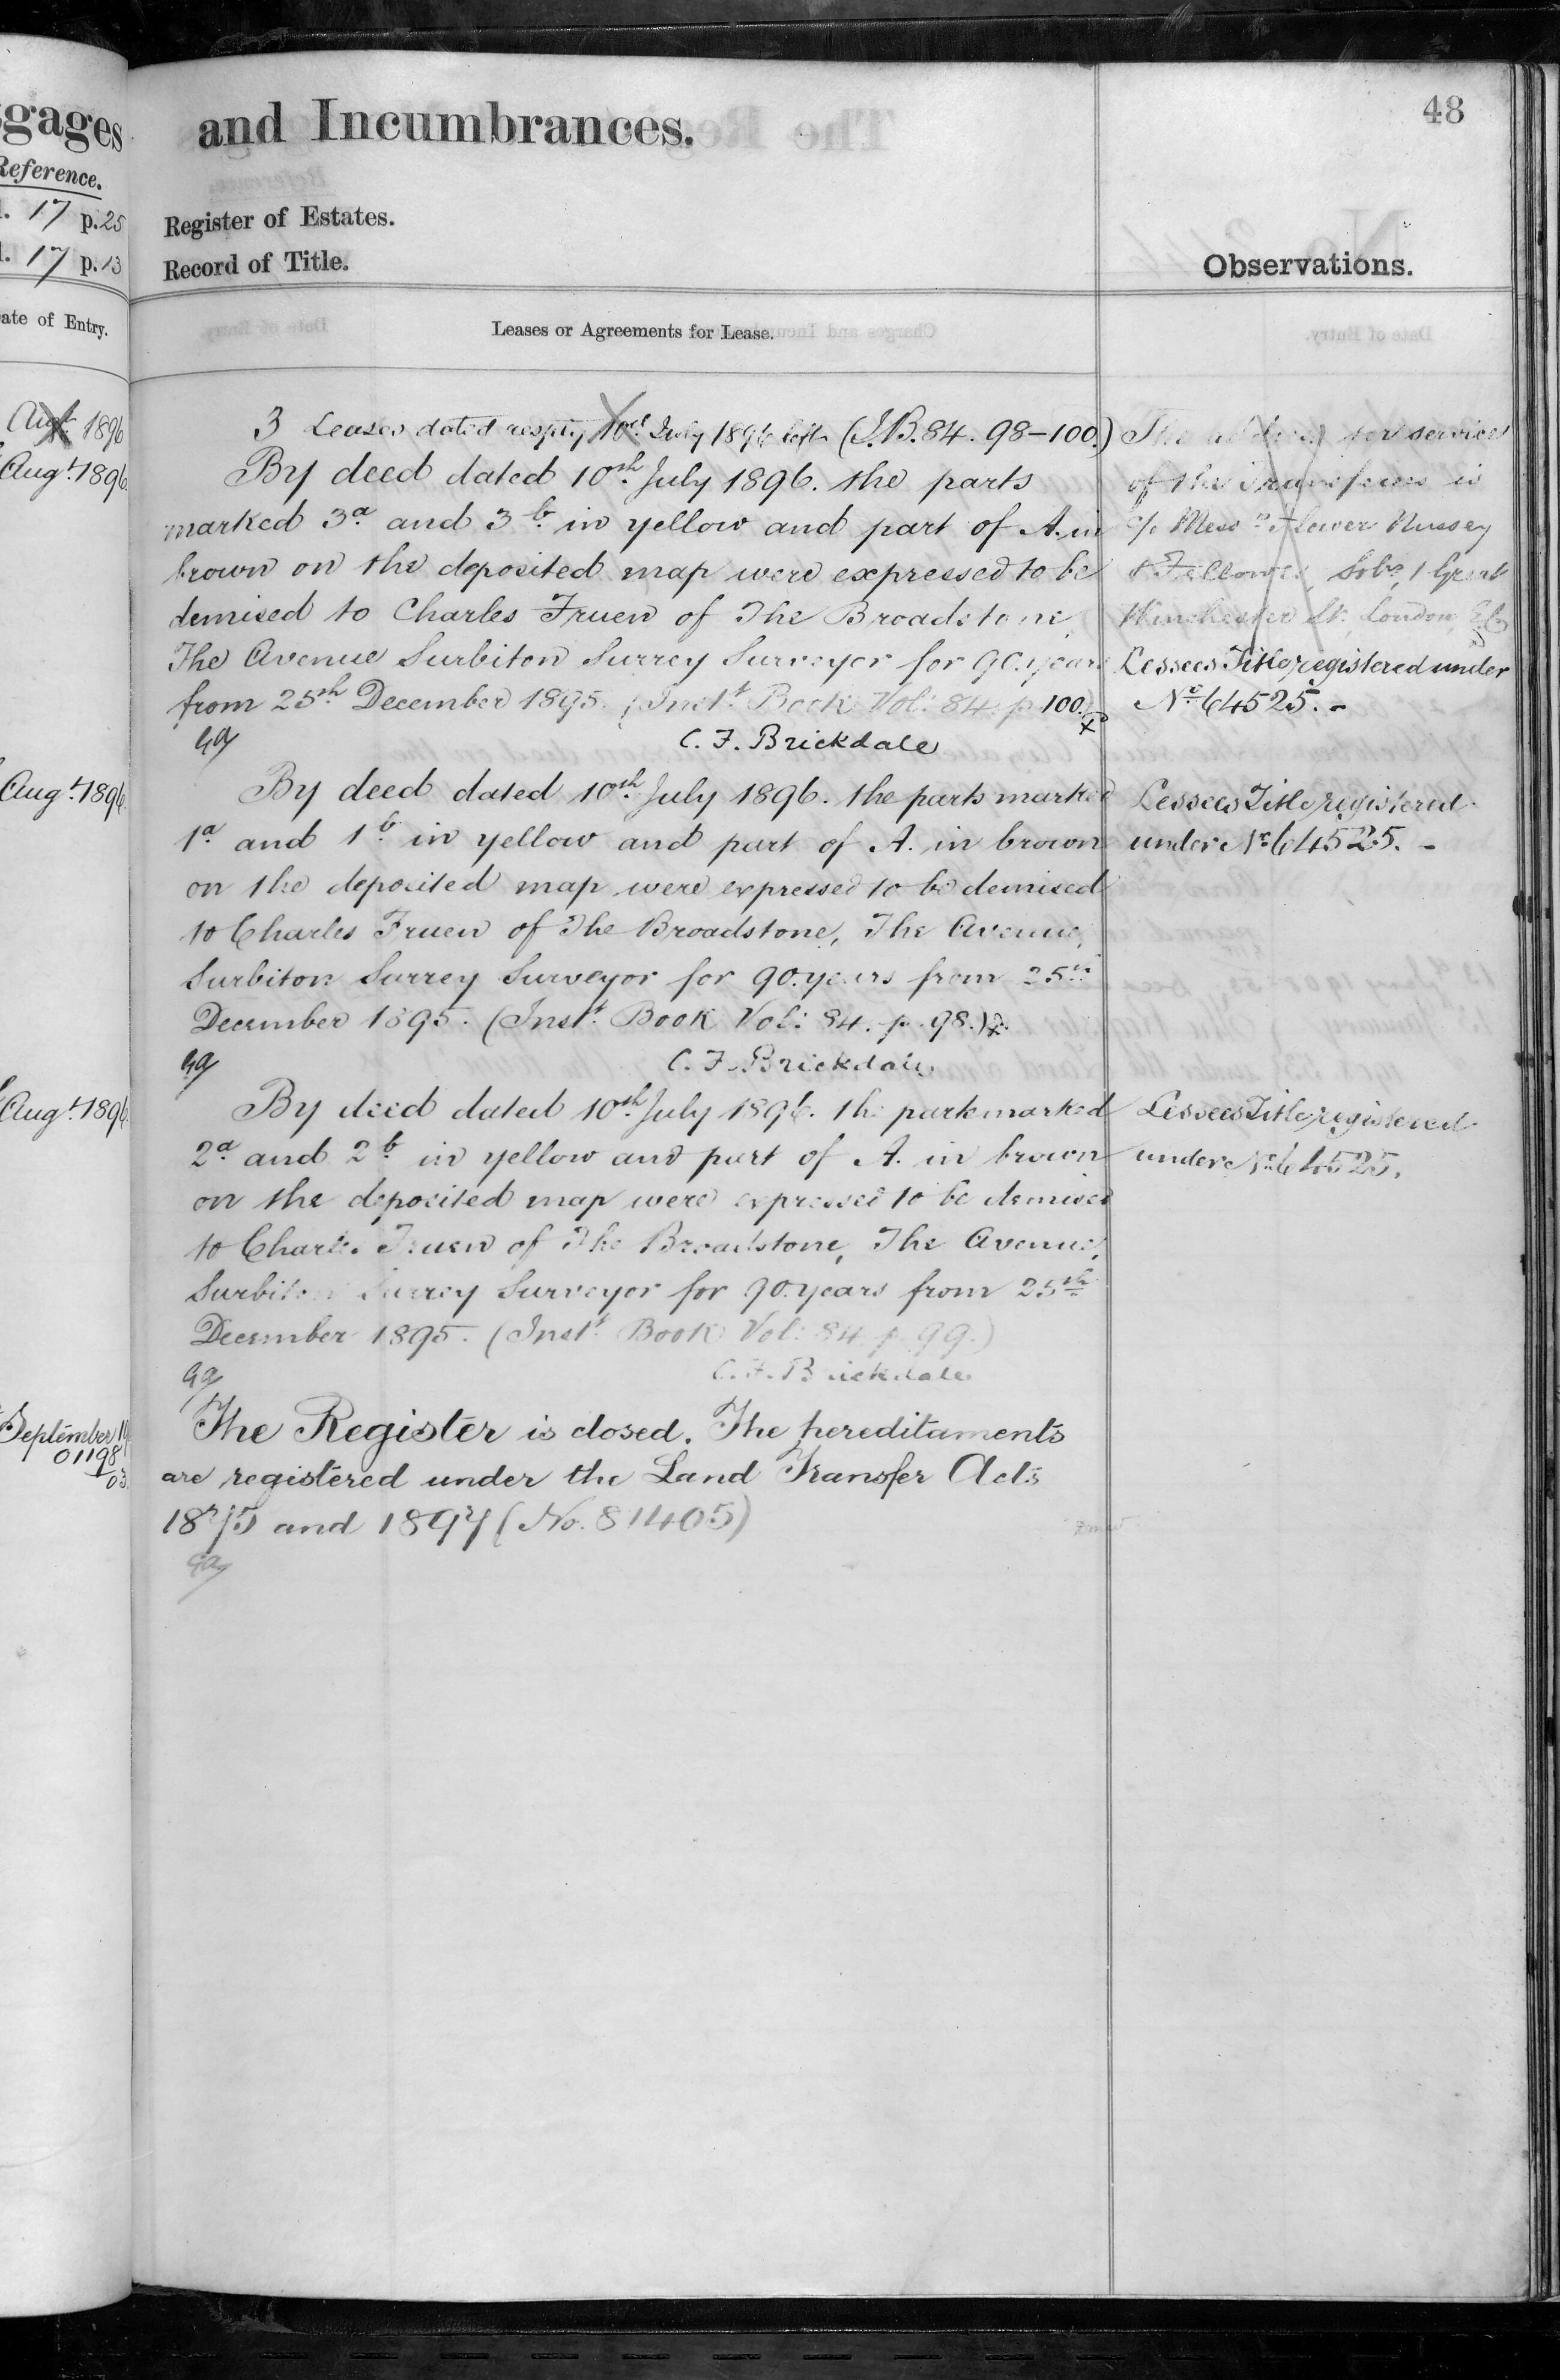 gages
Reference.
17 p. 25
17 p. 13
ate of Entry.
Augt. 1896
Augt. 1896
Augt. 1896
Augt. 1896
September
01198
03
and Incumbrances.
48
Register of Estates.
Record of Title.
Observations.
Leases or Agreements for Lease.
3 Leases dated resply 10th July 1896 left (I.B. 84. 98–100.)
By deed dated 10th July 1896. the parts
marked 3a and 3b in yellow and part of A. in
brown on the deposited map were expressed to be
demised to Charles Fruen of The Broadstone,
The Avenue Surbiton Surrey Surveyor for 90. years
from 25th December 1895. (Inst. Book Vol: 84. p 100.)
C. F. Brickdale
By deed dated 10th July 1896. the parts marked
1a and 1b in yellow and part of A. in brown
on the deposited map were expressed to be demised
to Charles Fruen of The Broadstone, The Avenue,
Surbiton Surrey Surveyor for 90. years from 25th
December 1895. (Inst. Book Vol: 84. p. 98.)
C. F. Brickdale
By deed dated 10th July 1896. the parts marked
2a and 2b in yellow and part of A. in brown
on the deposited map were expressed to be demised
to Charles Fruen of The Broadstone, The Avenue,
Surbiton Surrey Surveyor for 90. years from 25th
December 1895. (Inst. Book Vol: 84. p. 99.)
C. F. Brickdale
The Register is closed. The hereditaments
are registered under the Land Transfer Acts
1875 and 1897 (No. 81405)
The address for service
of the Transferees is
c/o Messrs Flower Nussey
& Fellowes, Solrs, 1 Great
Winchester St. London E.C.
Lessees Title registered under
No 64525. -
Lessees Title registered
under No 64525. -
Lessees Title registered
under No 64525.